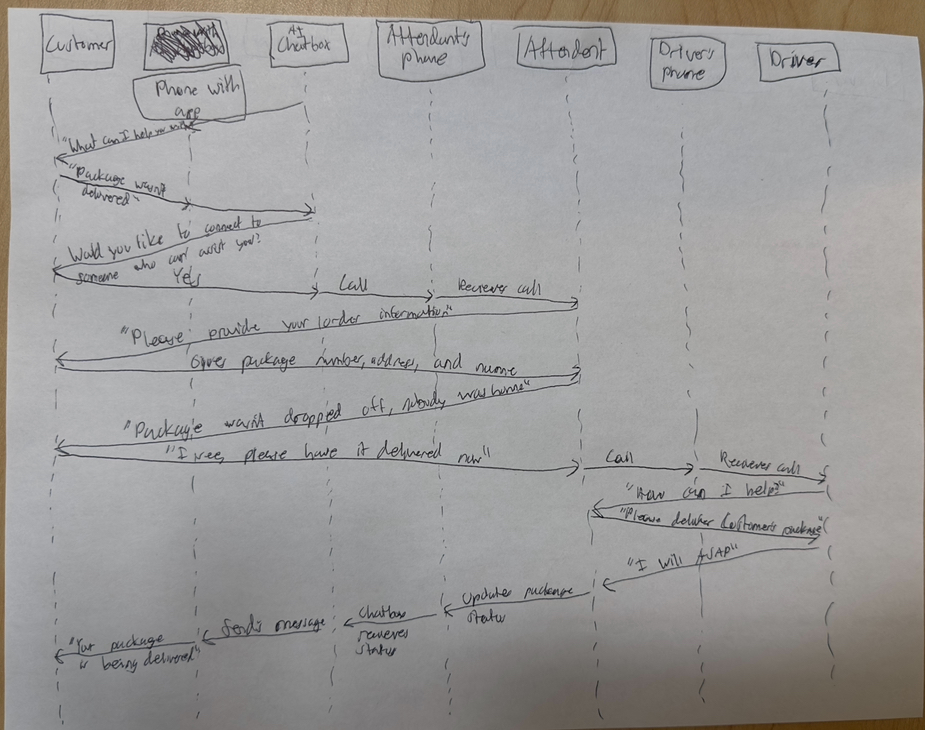 Customer
AI
Chatbox
Attendant's
phone
Attendent
Driver's
phone
Driver
Phone with
app
"What can I help you with"
"Package wasn't
delivered"
Would you like to connect to
someone who can assist you?
Yes
Call
Recieves call
"Please provide your order information"
Gives package number, address, and name
"Package wasn't dropped off, nobody was home"
"I see, please have it delivered now"
Call
Recieves call
"How can I help?"
"Please deliver Customer's package"
"I will ASAP"
Updates package
status
Chatbox
recieves
status
Sends message
"Your package
is being delivered"